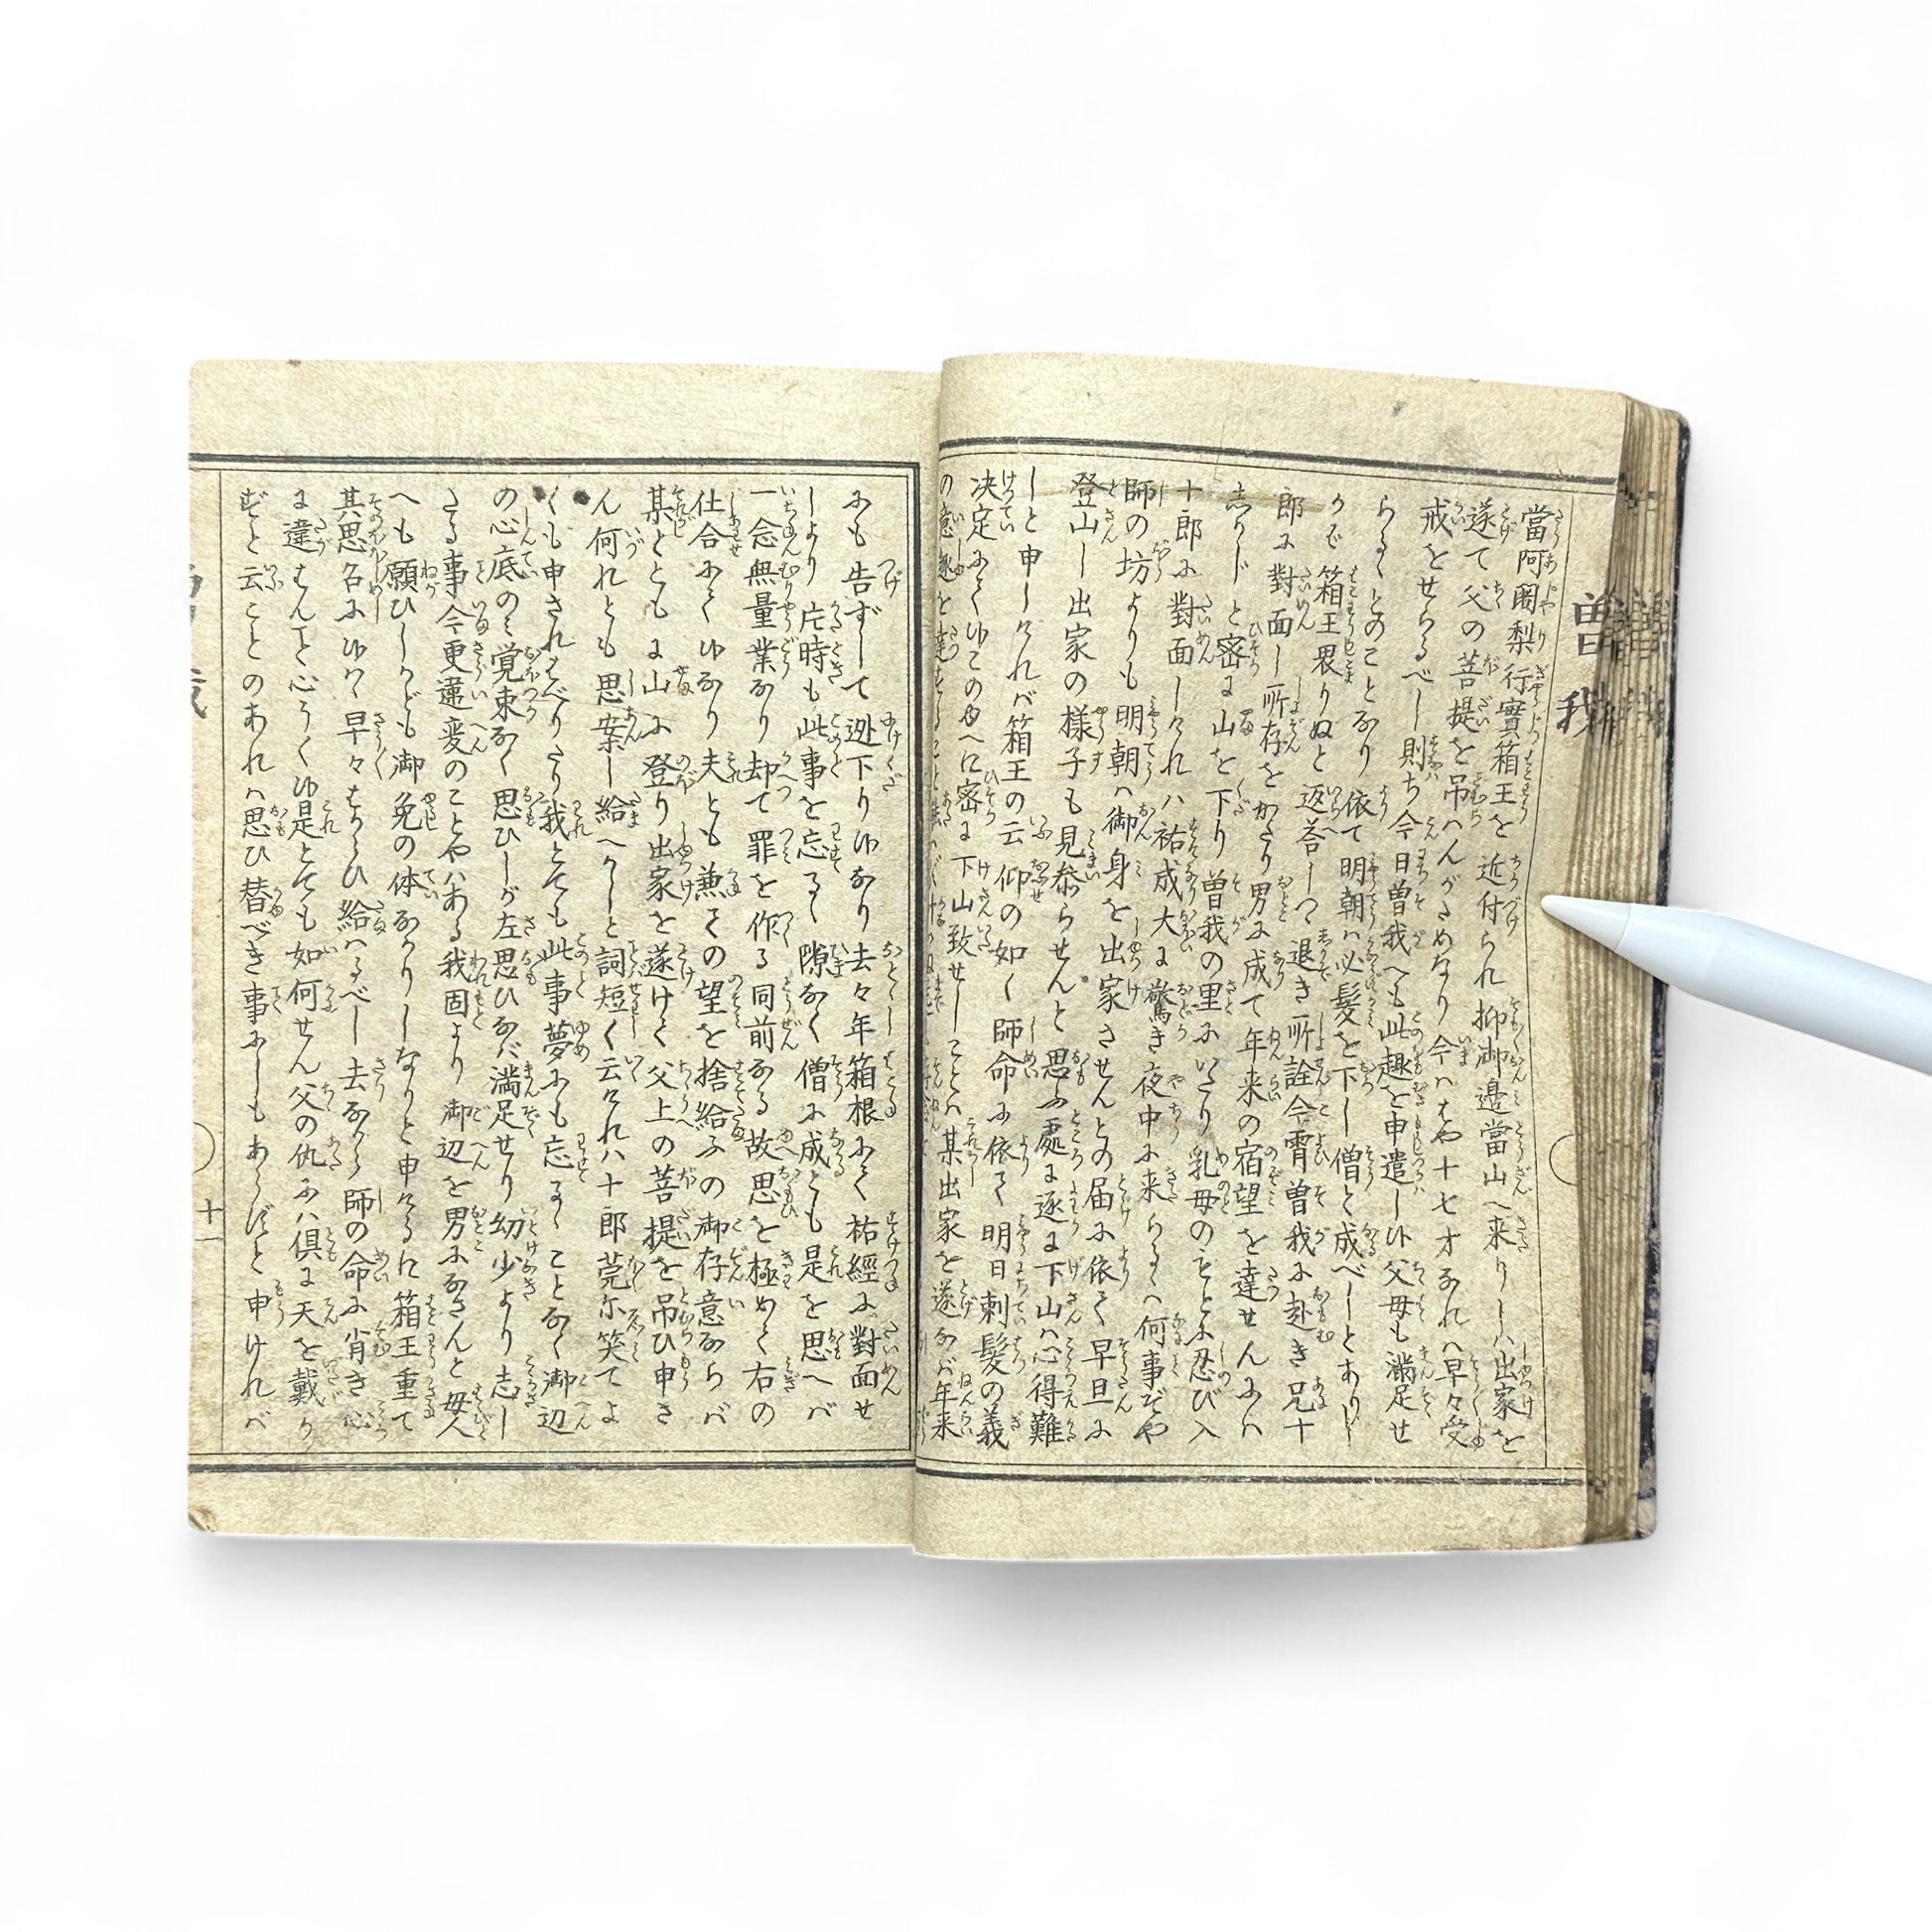 當阿闍梨行實箱王を近付られ抑御邊當山へ来りしハ出家を
遂て父の菩提を吊ハんがためなり今ハはや十七才なれハ早々受
戒をせらるべし則ち今日曽我へも此趣を申遣し候父母も満足せ
らるゝとのことなり依て明朝ハ必髪を下し僧と成べしとありし
かば箱王畏りぬと返荅しつゝ退き所詮今霄曽我に赴き兄十
郎に對面し所存をかたり男に成て年来の宿望を達せんにハ
しかじと密に山を下り曽我の里にいたり乳母のもとに忍び入
十郎に對面しけれハ祐成大に驚き夜中に来らるゝハ何事ぞや
師の坊よりも明朝ハ御身を出家させんとの届に依て早旦に
登山し出家の様子も見参らせんと思ふ處に逐に下山ハ心得難
しと申しけれバ箱王の云仰の如く師命に依て明日剃髪の義
决定にて候このゆへに密に下山致せしことハ某出家を遂なバ年来
の意趣を達
にも告ずして迯下り候なり去々年箱根にて祐經に對面せ
しより片時も此事を忘るゝ隙なく僧に成とも是を思へバ
一念無量業なり却て罪を作る同前なる故思を極めて右の
仕合にて候なり夫とも兼ての望を捨給ふの御存意ならバ
某とともに山に登り出家を遂けて父上の菩提を吊ひ申さ
ん何れとも思案し給へかしと詞短く云けれハ十郎莞尓笑てよ
くも申されはべりたり我とても此事夢にも忘るゝことなく御辺
の心底のミ覚束なく思ひしが左思ひなバ満足せり幼少より志し
たる事今更違変のことやハある我固より御辺を男になさんと母人
へも願ひしかども御免の体なかりしなりと申けるに箱王重て
其思召に候ハゝ早々はからひ給ハるべし去ながら師の命に背き心
に違はんと心うく候是とても如何せん父の仇にハ倶に天を戴か
ずと云ことのあれハ思ひ替べき事にしもあらずと申けれバ
曽我
十一